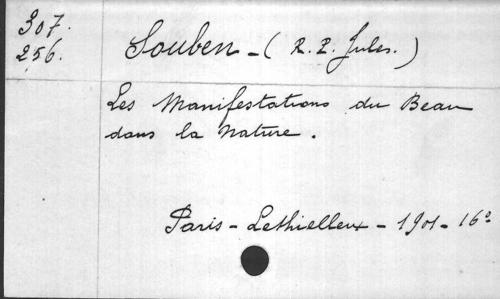 307.
256.
Souben - ( R. P. Jules. )
Les Manifestations du Beau
dans la Nature .
Paris - Lethielleux - 1901 - 16º